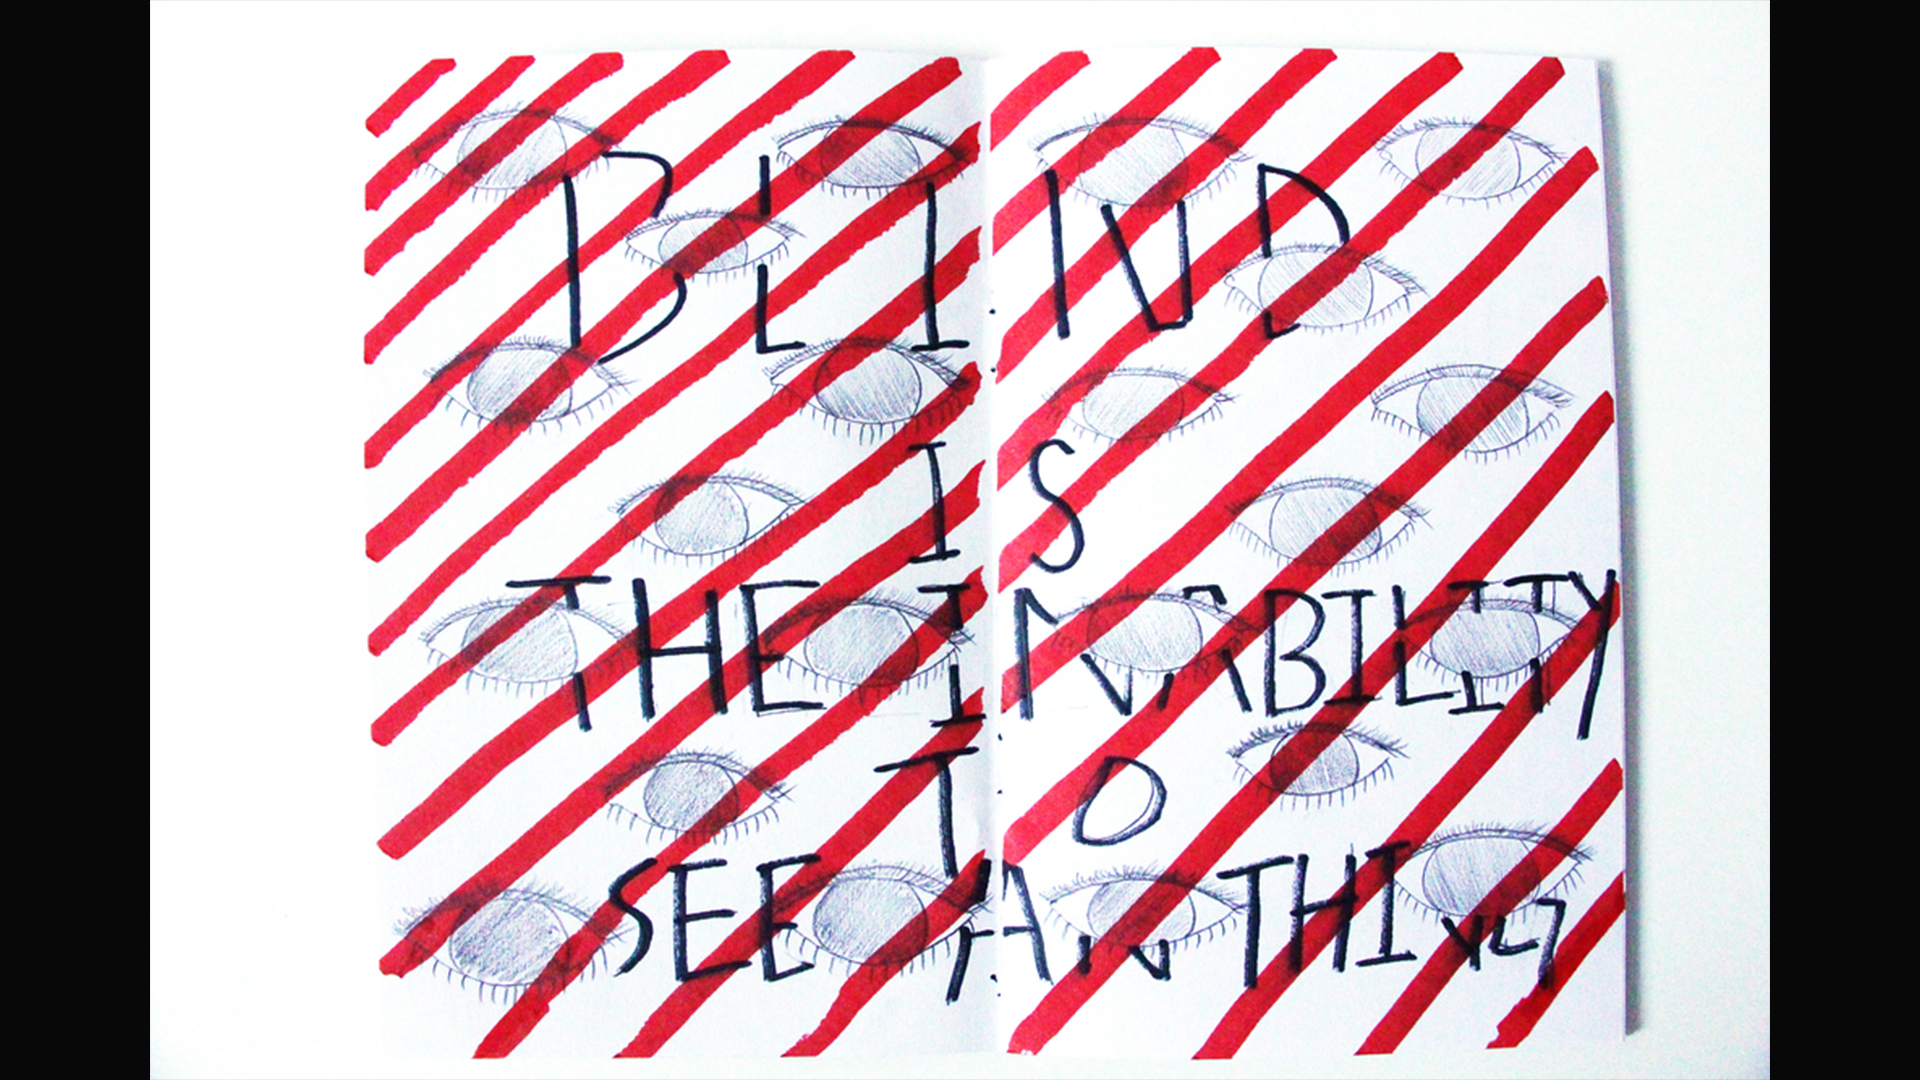 BLIND
IS
THE INABILITY
TO
SEE ANTHING